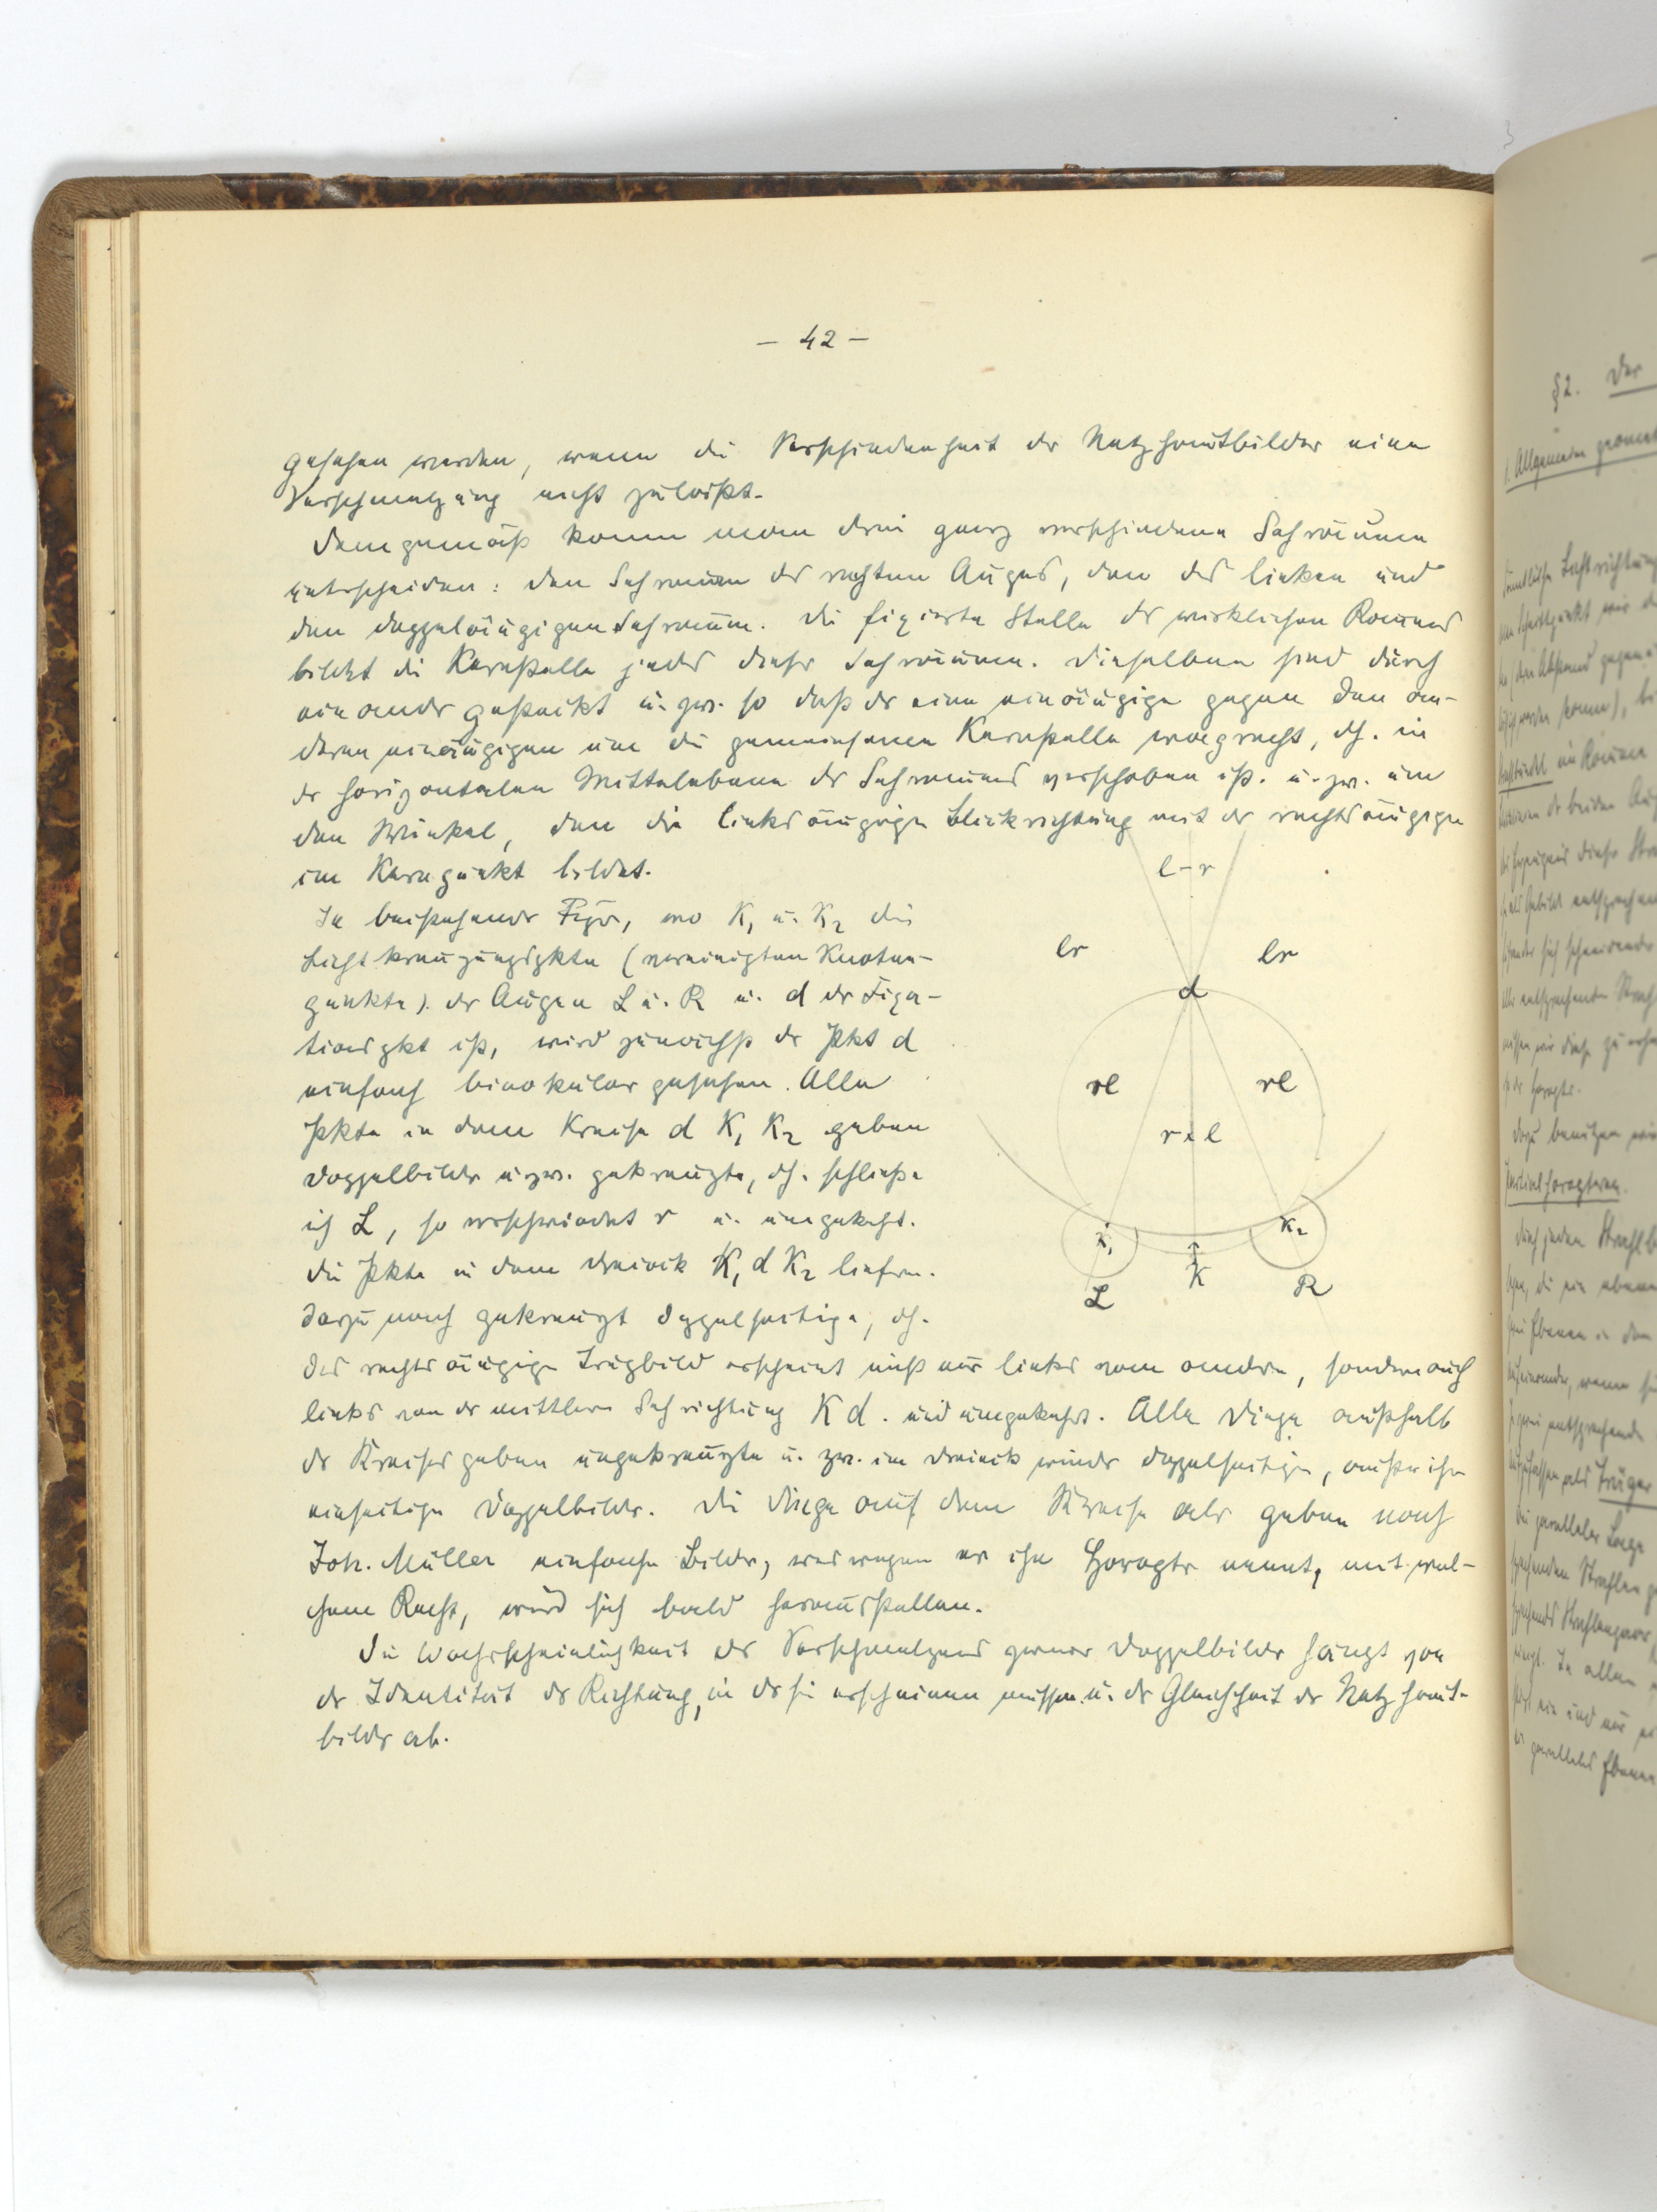 – 42 –
gesehen werden, wenn die Verschiedenheit der Netzhautbilder eine
Verschmelzung nicht zuläßt.
Demgemäß kann man drei ganz verschiedene Sehräume
unterscheiden: den Sehraum des rechten Auges, den des linken und
den doppeläugigen Sehraum. Die fixierte Stelle des wirklichen Raumes
bildet die Kernstelle jedes dieser Sehräume. Dieselben sind durch
einander gesteckt u. zw. so daß der eine einäugige gegen den an-
deren einäugigen um die gemeinsame Kernstelle wagrecht, dh. in
der horizontalen Mittelebene des Sehraumes verschoben ist. u. zw. um
den Winkel, den die linksäugige Blickrichtung mit der rechtsäugigen
im Kernpunkt bildet.
In beistehender Figur, wo K₁ u. K₂ die
Lichtkreuzungspkte (vereinigten Knoten-
punkte) der Augen L u. R u. d der Fixa-
tionspkt ist, wird zunächst der Pkt d
einfach binokular gesehen. Alle
Pkte in dem Kreise d K₁ K₂ geben
Doppelbilder u. zw. gekreuzte, dh. schließe
ich L, so verschwindet r u. umgekehrt.
Die Pkte in dem Dreieck K₁ d K₂ liefern
dazu noch gekreuzt doppelseitige, dh.
das rechtsäugige Trugbild erscheint nicht nur links vom andern, sondern auch
links von der mittleren Sehrichtung K d. und umgekehrt. Alle Dinge außerhalb
des Kreises geben ungekreuzte u. zw. im Dreieck wieder doppelseitige, außer ihm
einseitige Doppelbilder. Die Dinge auf dem Kreise aber geben nach
Joh. Müller einfache Bilder, weswegen er ihn Horopter nennt, mit wel-
chem Recht, wird sich bald herausstellen.
Die Wahrscheinlichkeit des Verschmelzens zweier Doppelbilder hängt von
der Identität der Richtung, in der sie erscheinen müssen u. der Gleichheit der Netzhaut-
bilder ab.
l–r
lr lr
d
rl rl
r l
K₁ K₂
K
L R
§2. Der
1. Allgemeine